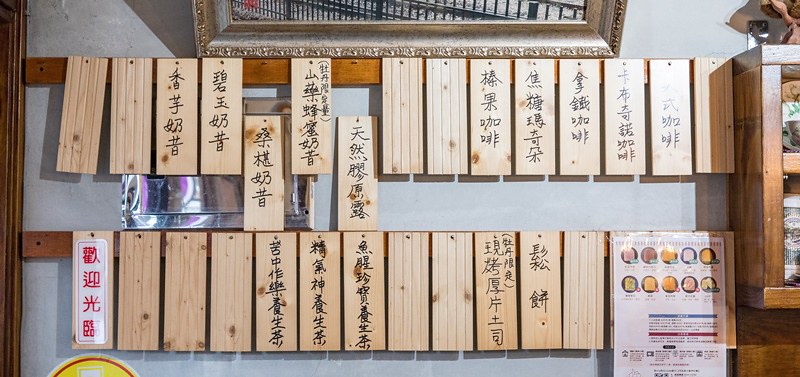 香芋奶昔
碧玉奶昔
(牡丹限定量)
山藥蜂蜜奶昔
榛果咖啡
焦糖瑪奇朵
拿鐵咖啡
卡布奇諾咖啡
式咖啡
桑椹奶昔
天然膠原露
歡迎光臨
苦中作樂養生茶
精氣神養生茶
魚腥珍寶養生茶
(牡丹限定)
現烤厚片土司
鬆餅